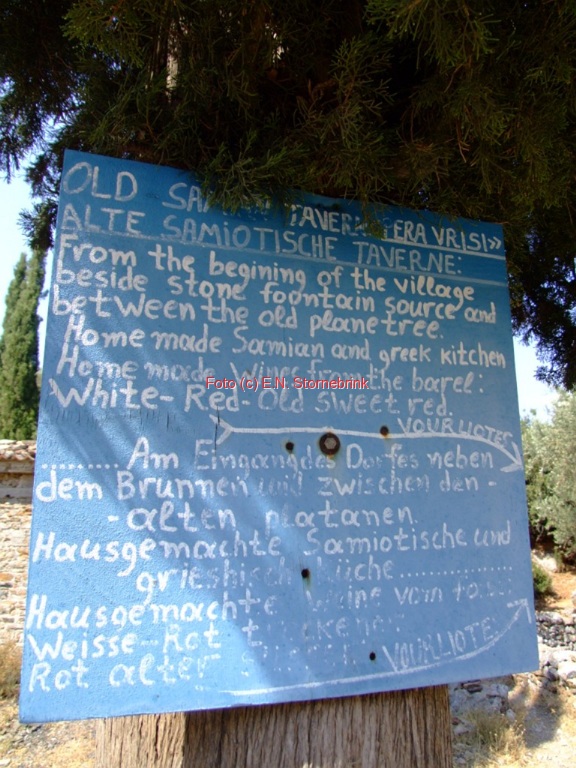 OLD TAVERN PERA VRISI»
ALTE SAMIOTISCHE TAVERNE:
From the begining of the village
beside stone fountain source and
between the old planetree.
Home made Samian and greek kitchen
Home made Wines from the barel:
Foto (c) E.N. Stornebrink
White-Red-Old sweet red.
VOURLIOTES
......... Am Eingang des Dorfes neben
dem Brunnen und zwischen den -
- alten platanen.
Hausgemachte Samiotische und
griechisch küche...............
Hausgemachte Weine vom
Weisse-Rot
Rot alter VOURLIOTES